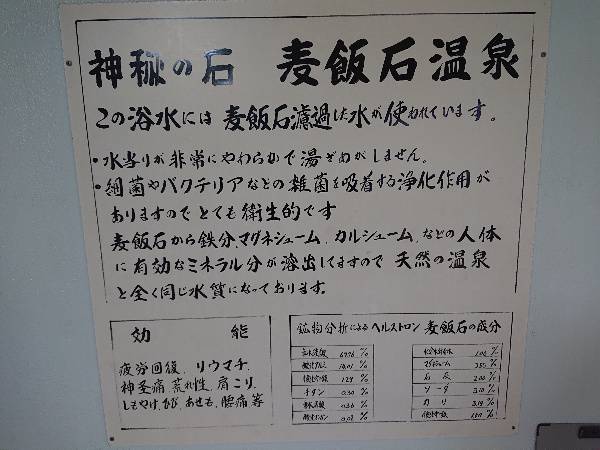 神秘の石 麦飯石温泉
この浴水には麦飯石濾過した水が使われています。
・水当りが非常にやわらかで湯ざめがしません。
・細菌やバクテリアなどの雑菌を吸着する浄化作用が
ありますのでとても衛生的です
麦飯石から鉄分、マグネシューム、カルシューム、などの人体
に有効なミネラル分が溶出してますので天然の温泉
と全く同じ水質になっております。
効能
疲労回復、リウマチ、
神圣痛 荒れ性、肩こり、
しもやけ、ひび、あせも、腰痛 等
鉱物分析によるヘルストロン 麦飯石の成分
チタン 0.30 %
マグネシューム 3.55 %
石灰 2.00 %
ソーダ 3.10 %
カリ 3.19 %